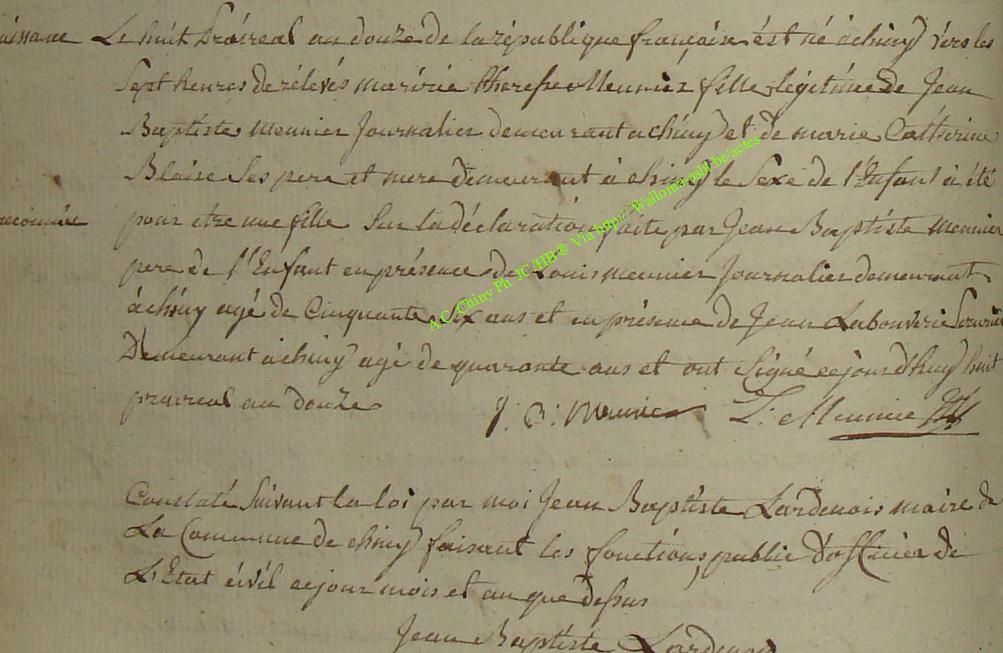 aissance Le huit Prairéal an douze de la république française est né à chiny vers les
Sept heures de rélevés marie therese Meunier fille légitime de Jean
Baptiste meunier Journalier demeurant a chiny et de marie Catherine
Blaise Ses pere et mere demeurant à chiny le Sexe de l'Enfant à été
reconnüe pour etre une fille Sur la déclaration faite par Jean Baptiste meunier
pere de l'Enfant en présence de Louis meunier Journalier demeurant
à chiny agé de Cinquante Six ans et en présence de Jean Labouverie
Demeurant à chiny agé de quarante ans et ont Signé ce jour d'huy huit
praireal an douze J: B: Meunier L: Meunier
Constaté Suivant la loi par moi Jean Baptiste Lardenois maire de
La Commune de chiny faisant les fonctions public d'officier de
L'Etat civil ce jour mois et an que dessus
Jean Baptiste Lardenois
A.C. Chiny Ph. JC /HB® Via http://Wallonia-asbl.be/actes